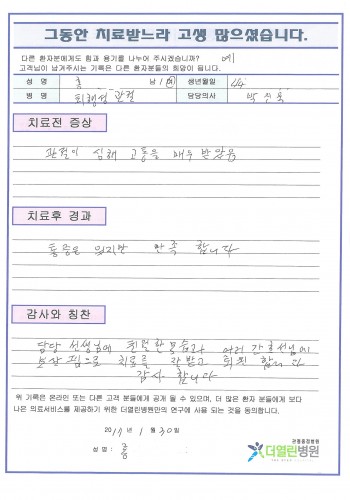 그동안 치료받느라 고생 많으셨습니다.
다른 환자분에게도 힘과 용기를 나누어 주시겠습니까? 예
고객님이 남겨주시는 기록은 다른 환자분들의 희망이 됩니다.
성 명 홍 남 / 여 생년월일 44.
병 명 퇴행성 관절 담당의사 박진욱
치료전 증상
관절이 심해 고통을 매우 받았음
치료후 경과
통증은 있지만 만족 합니다
감사와 칭찬
담당 선생님에 친절한 모습과 여러 간호선생님에
보살핌으로 치료를 잘 받고 퇴원 합니다
감사 합니다
위 기록은 온라인 또는 다른 고객 분들에게 공개 될 수 있으며, 더 많은 환자 분들에게 보다
나은 의료서비스를 제공하기 위한 더열린병원만의 연구에 사용 되는 것을 동의합니다.
2017년 1월 30일
성 명 : 홍
관절중점병원
더열린병원